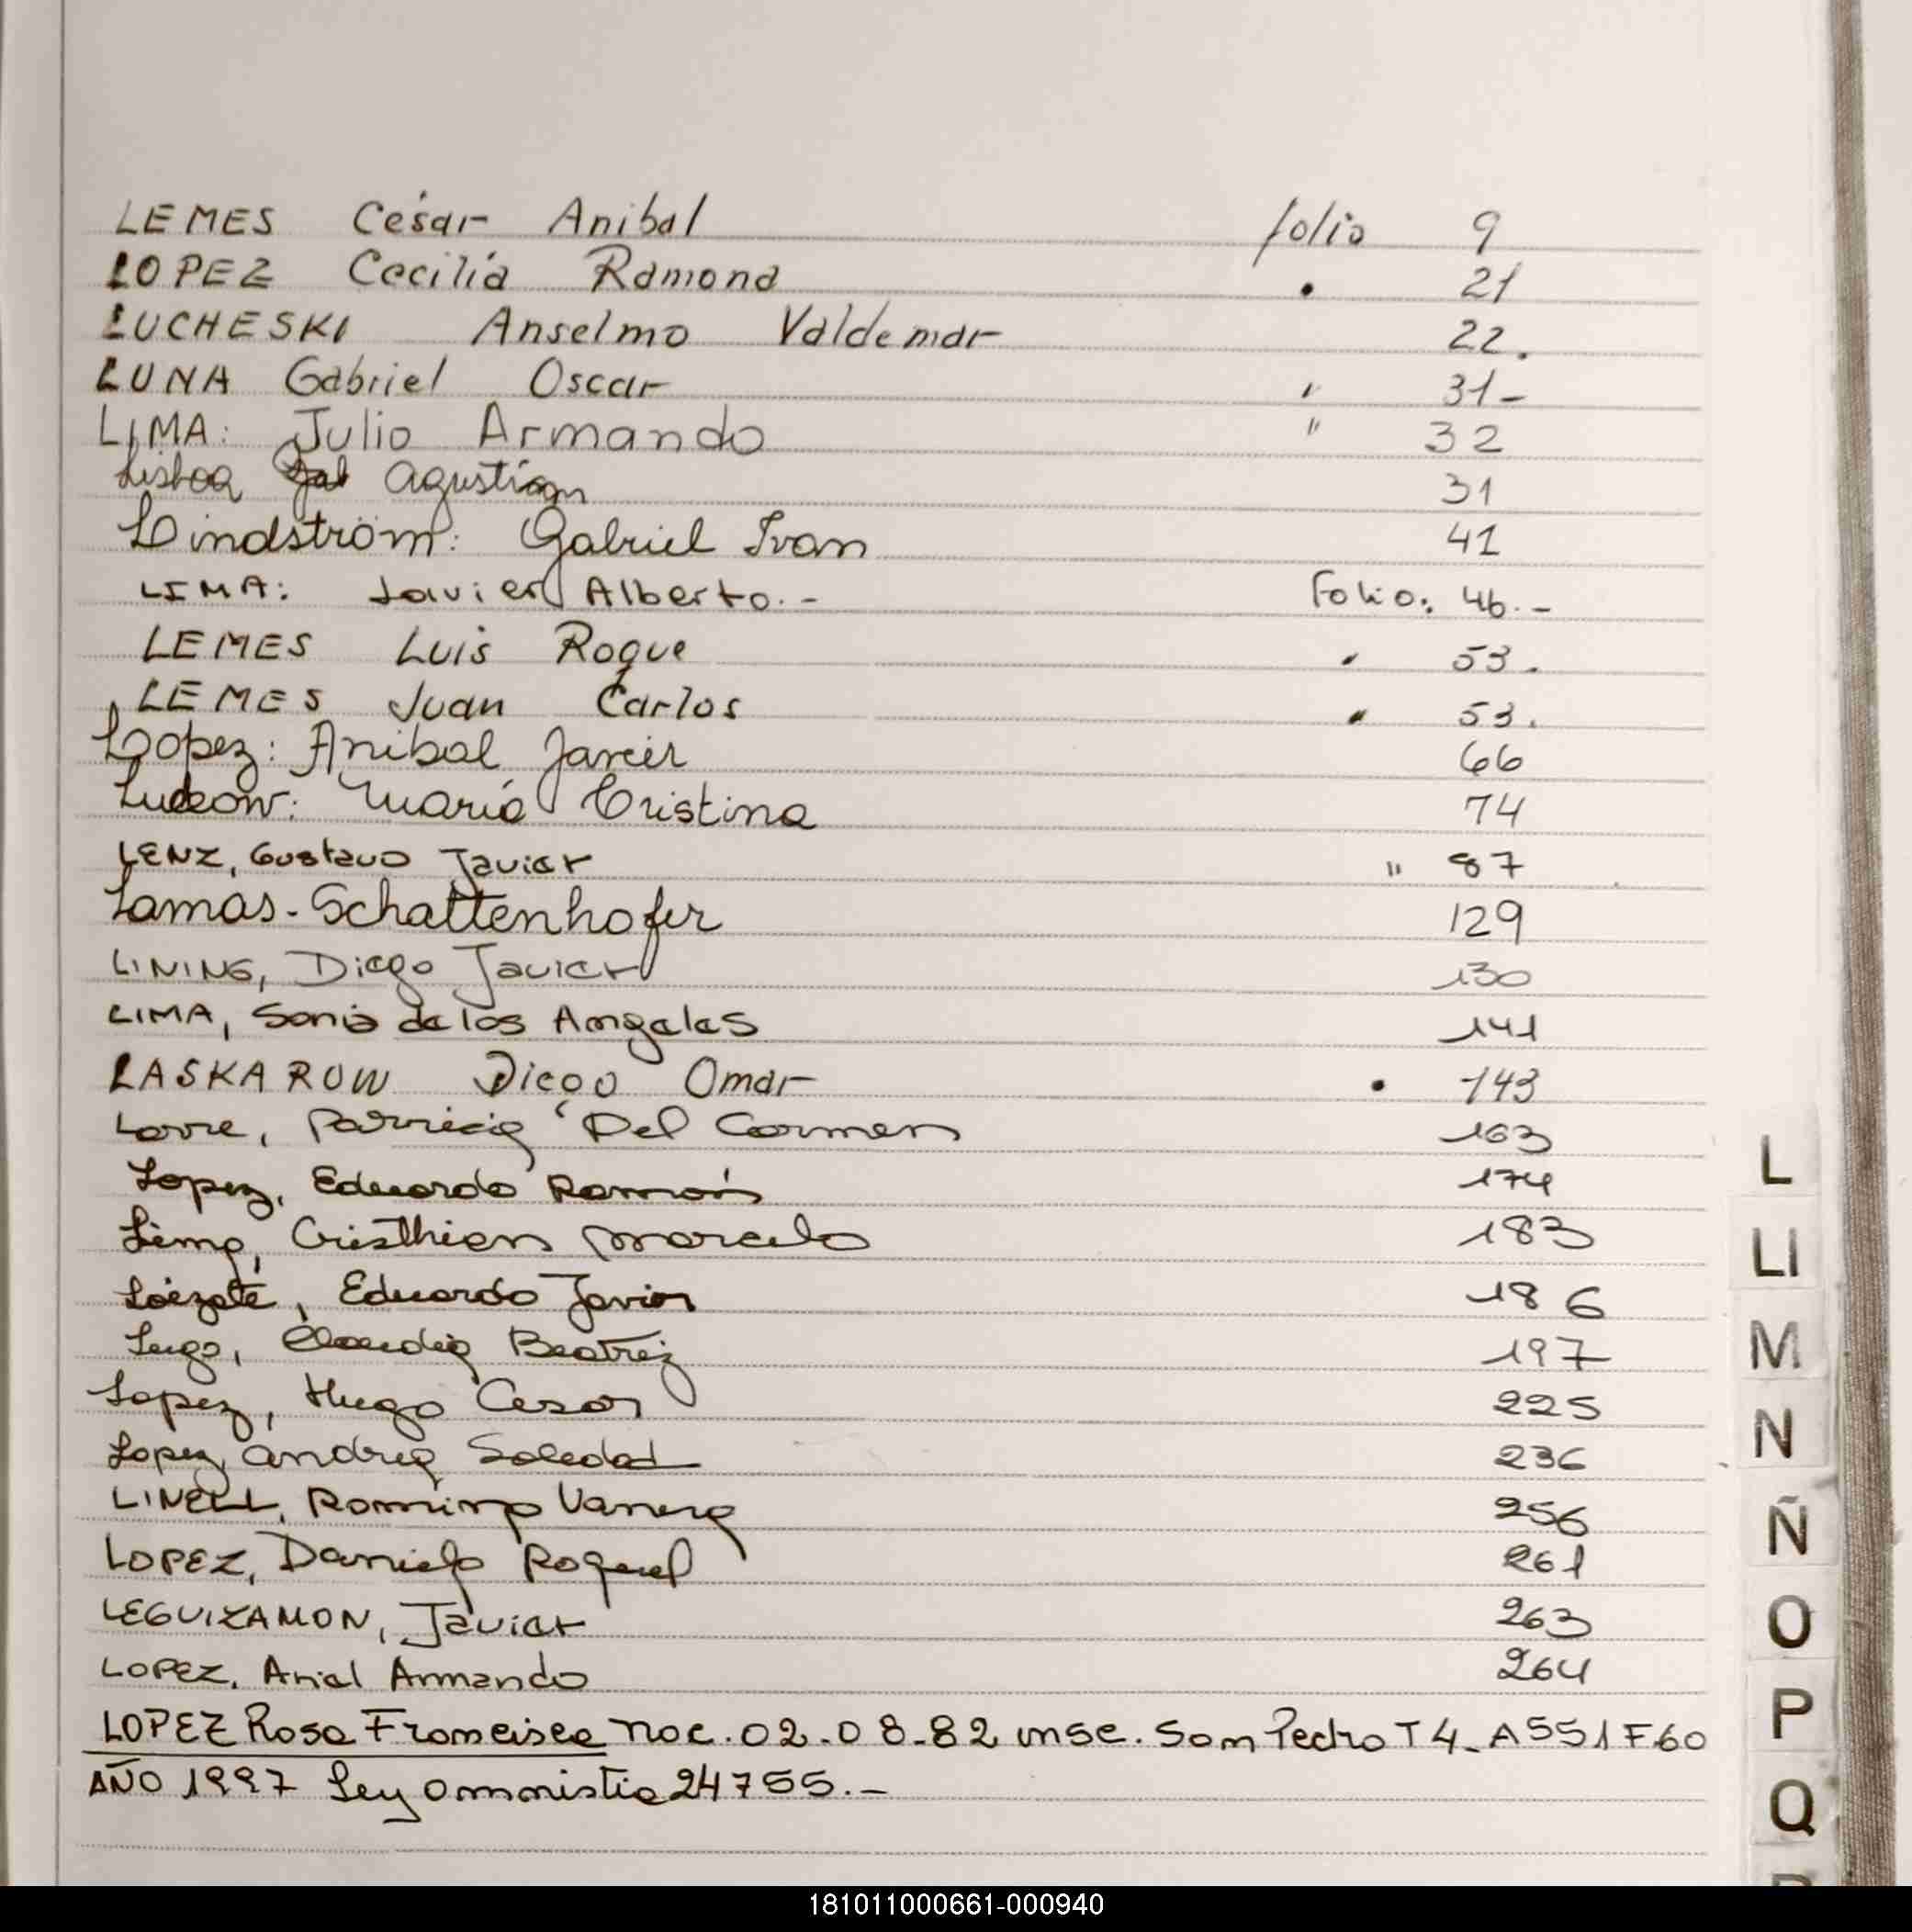 LEMES César Anibal folio 9
LOPEZ Cecilia Ramona " 21
LUCHESKI Anselmo Valdemar 22.
LUNA Gabriel Oscar " 31-
LIMA: Julio Armando " 32
Lisboa Agustian 31
Lindström: Gabriel Ivan 41
LIMA: Javier Alberto.- Folio: 46.-
LEMES Luis Roque " 53.
LEMES Juan Carlos " 53.
Lopez: Anibal Javier 66
María Cristina 74
LENZ, Gustavo Javier " 87
Lamas-Schattenhofer 129
LINING, Diego Javier 130
LIMA, Sonia de los Angeles 141
LASKAROW Diego Omar " 143
Lorre, Patricia Del Carmen 163
Lopez, Eduardo Ramón 174
Lima, Cristhian Marcelo 183
Eduardo Javier 186
Lugo, Claudia Beatriz 197
Lopez, Hugo Cesar 225
Lopez, Andrea Soledad 236
LINELL, Romina Vanesa 256
LOPEZ, Daniela Raquel 261
LEGUIZAMON, Javier 263
LOPEZ, Ariel Armando 264
LOPEZ Rosa Francisca nac. 02-08-82 insc. San Pedro T4-A551F60
AÑO 1997 Ley amnistia 24755.-
L
LI
M
N
Ñ
O
P
Q
181011000661-000940